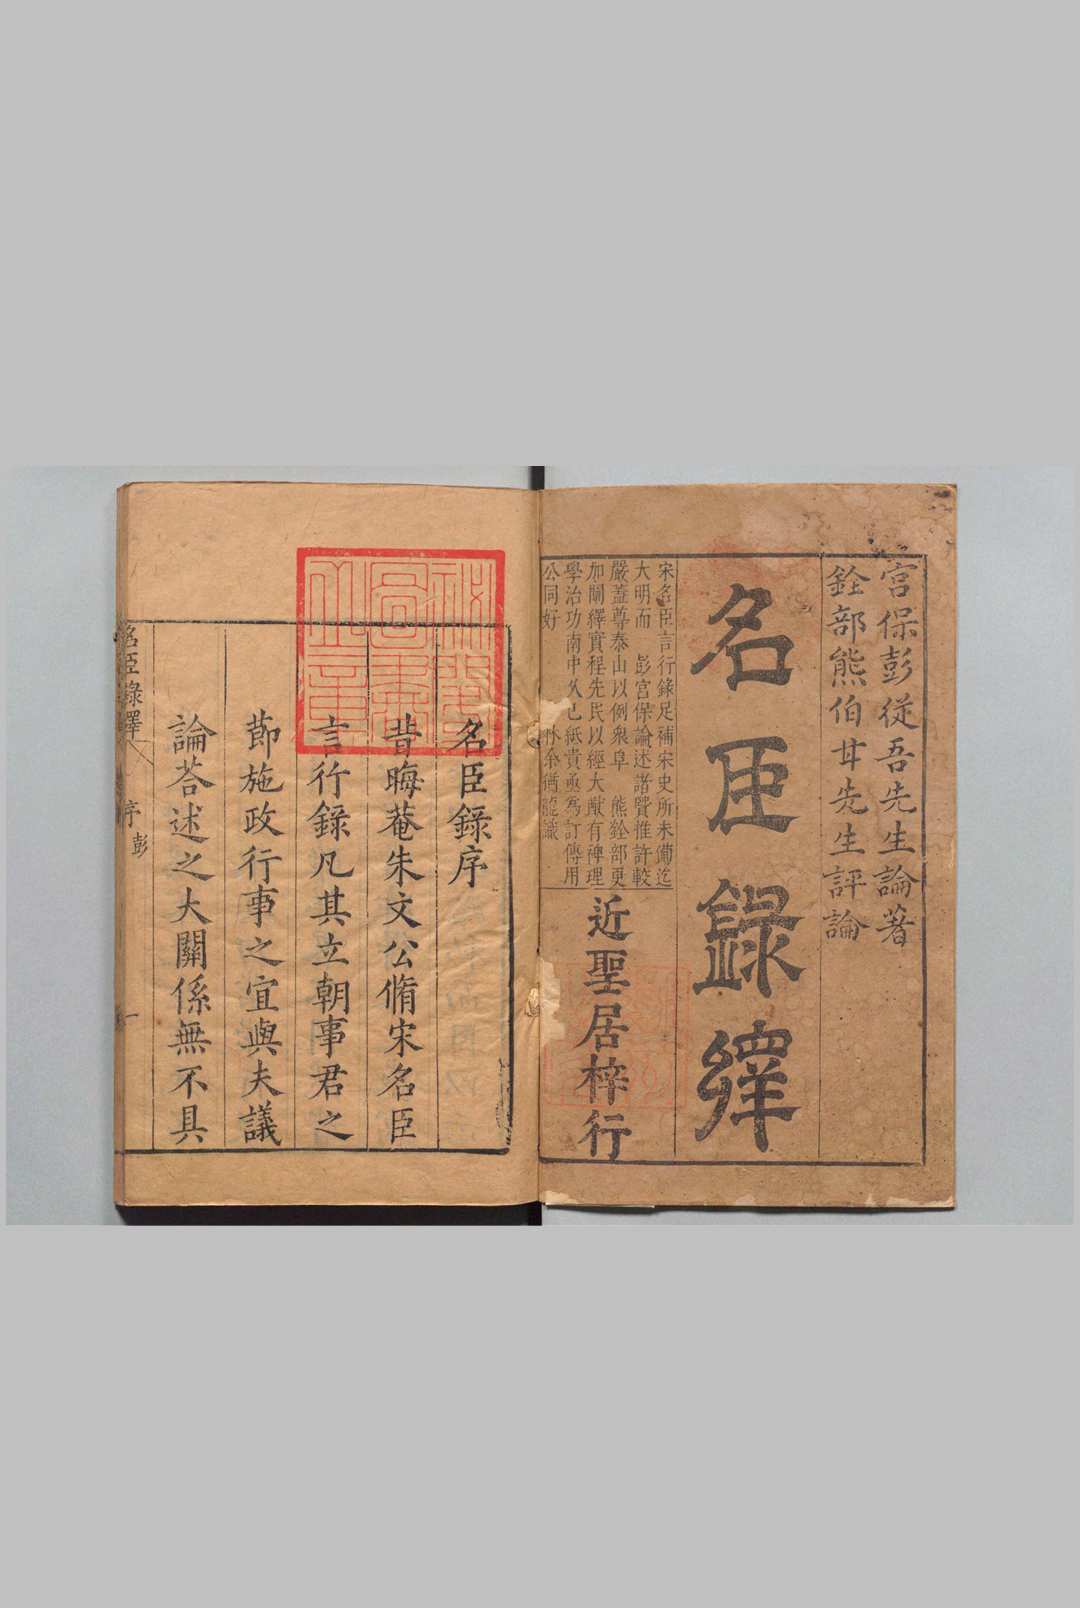 宮保彭從吾先生論著
銓部熊伯甘先生評論
名臣錄繹
宋名臣言行錄足補宋史所未備迄
大明而　彭宮保論述諸賢推許較
嚴蓋尊泰山以例衆阜　熊銓部更
加闡繹實程先民以經大猷有裨理
學治功南中久已紙貴亟爲訂傳用
公同好　余猶龍識
近聖居梓行
名臣錄序
昔晦菴朱文公脩宋名臣
言行錄凡其立朝事君之
節施政行事之宜與夫議
論荅述之大關係無不具
名臣錄繹　序　彭　一